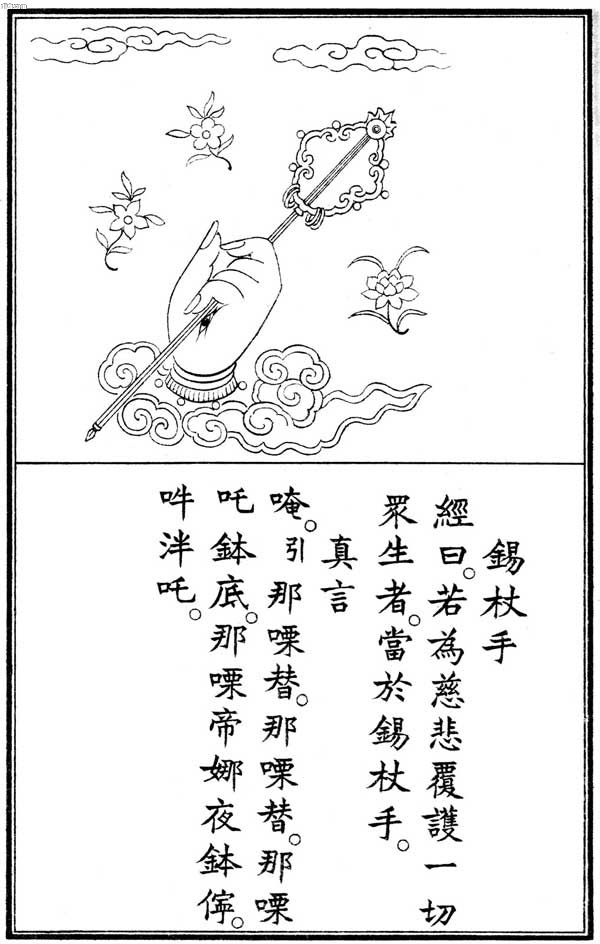 錫杖手
經曰。若為慈悲覆護一切
眾生者。當於錫杖手。
真言
唵。引那㗚替。那㗚替。那㗚
吒鉢底。那㗚帝娜夜鉢儜。
吽泮吒。